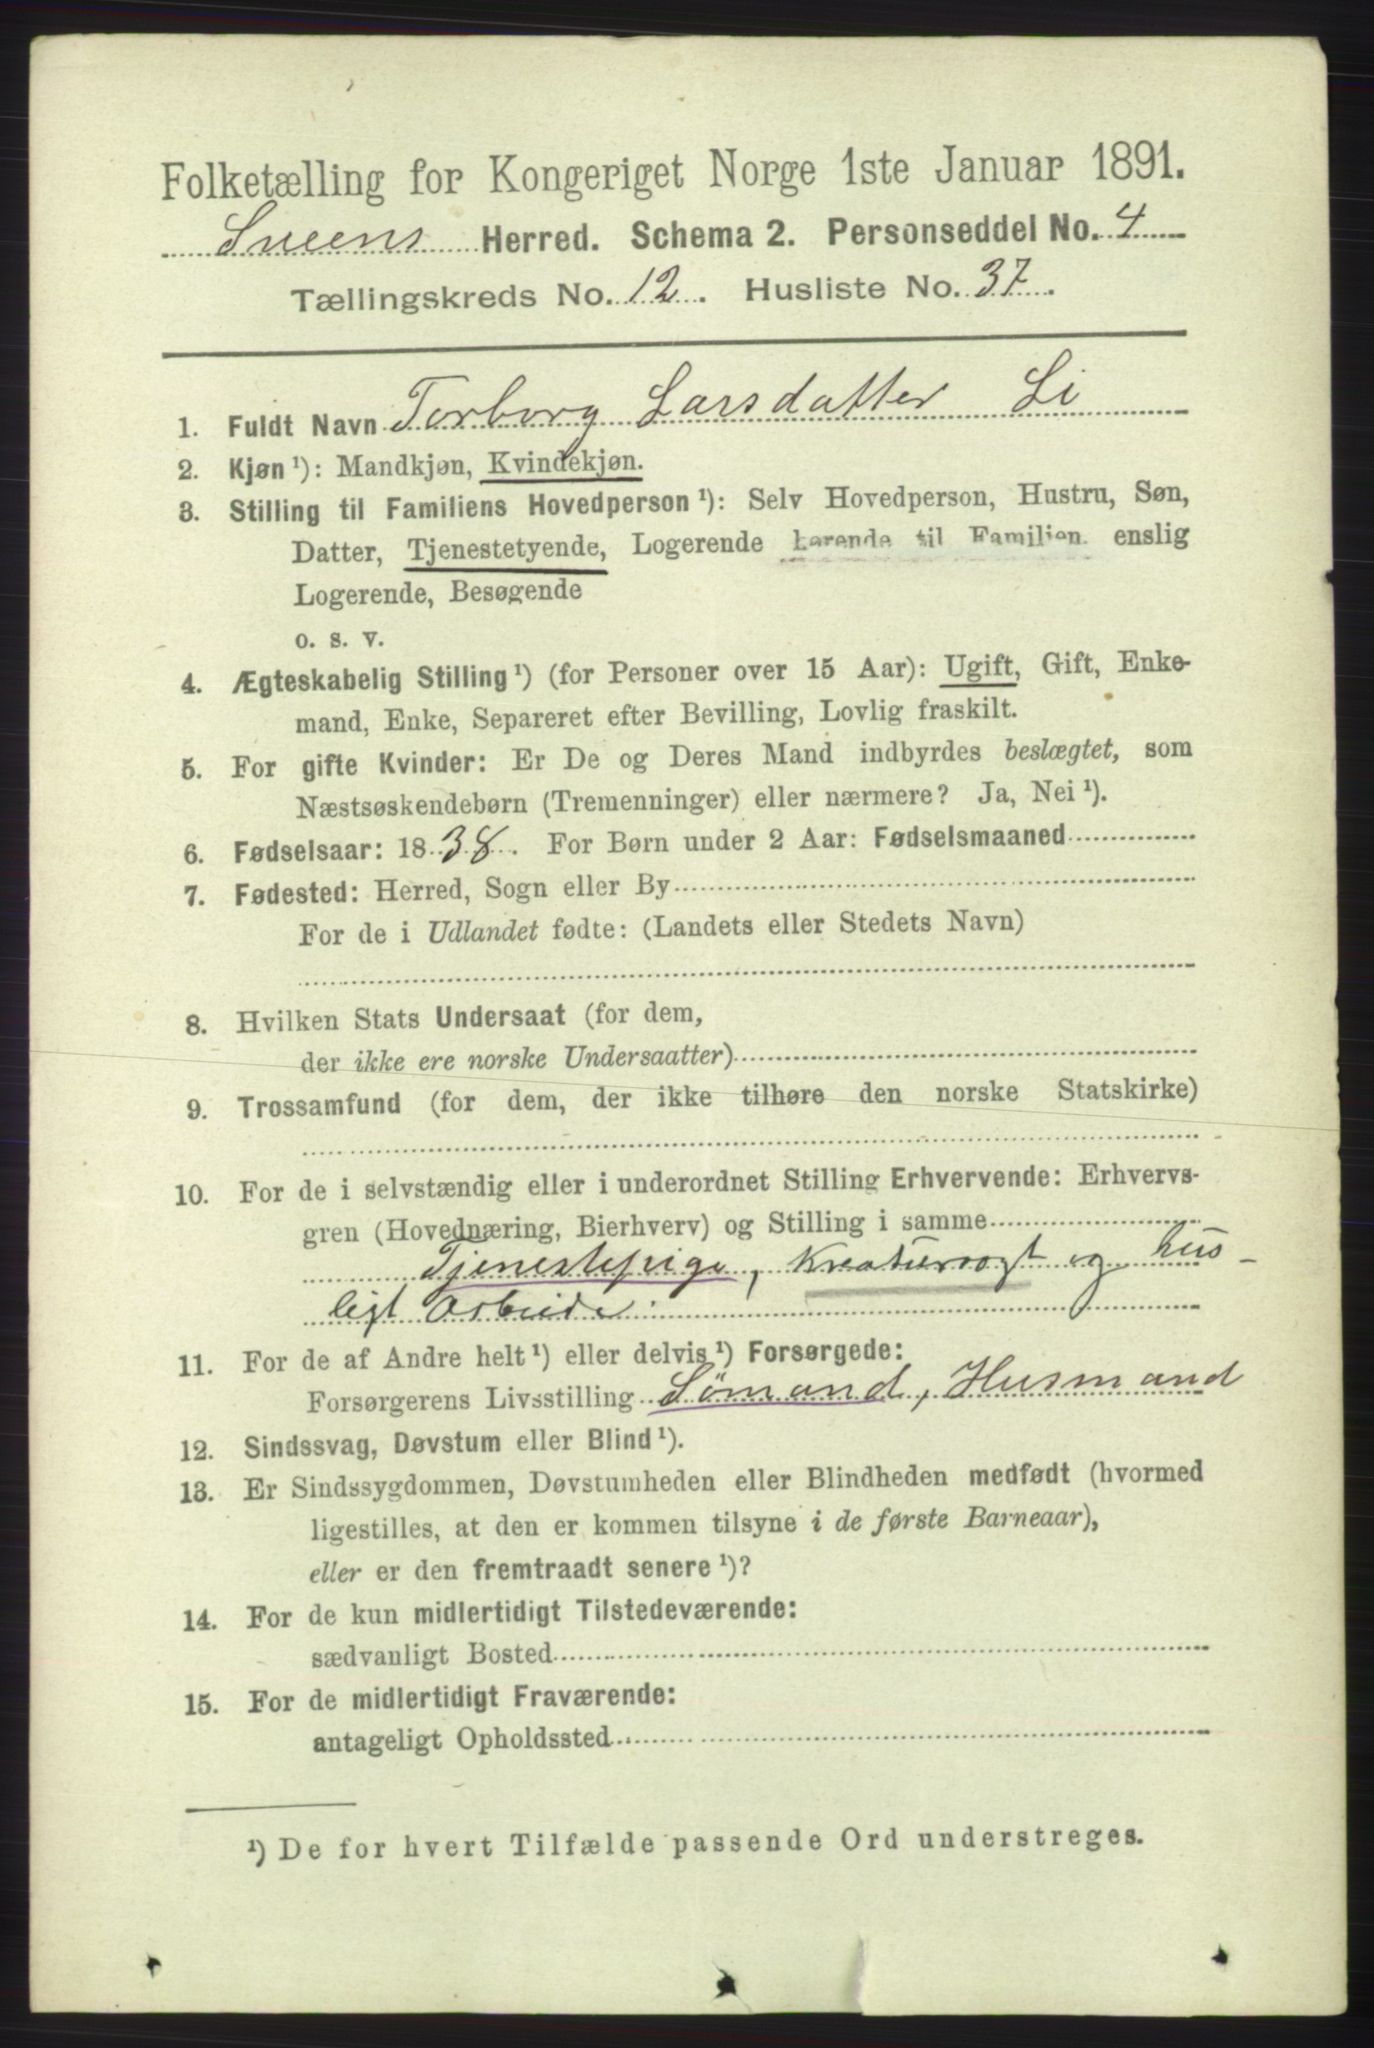 Folketælling for Kongeriget Norge 1ste Januar 1891.
Sveens Herred. Schema 2. Personseddel No. 4
Tællingskreds No. 12. Husliste No. 37.
1. Fuldt Navn Torborg Larsdatter Li
2. Kjøn ¹): Mandkjøn, Kvindekjøn.
3. Stilling til Familiens Hovedperson ¹): Selv Hovedperson, Hustru, Søn,
Datter, Tjenestetyende, Logerende hørende til Familien, enslig
Logerende, Besøgende
o. s. v.
4. Ægteskabelig Stilling ¹) (for Personer over 15 Aar): Ugift, Gift, Enke-
mand, Enke, Separeret efter Bevilling, Lovlig fraskilt.
5. For gifte Kvinder: Er De og Deres Mand indbyrdes beslægtet, som
Næstsøskendebørn (Tremenninger) eller nærmere? Ja, Nei ¹).
6. Fødselsaar: 1838. For Børn under 2 Aar: Fødselsmaaned
7. Fødested: Herred, Sogn eller By
For de i Udlandet fødte: (Landets eller Stedets Navn)
8. Hvilken Stats Undersaat (for dem,
der ikke ere norske Undersaatter)
9. Trossamfund (for dem, der ikke tilhøre den norske Statskirke)
10. For de i selvstændig eller i underordnet Stilling Erhvervende: Erhvervs-
gren (Hovednæring, Bierhverv) og Stilling i samme
Tjenestepige, Kreaturrøgt og hus-
ligt Arbeide.
11. For de af Andre helt ¹) eller delvis ¹) Forsørgede:
Forsørgerens Livsstilling Sømand, Husmand
12. Sindssvag, Døvstum eller Blind ¹).
13. Er Sindssygdommen, Døvstumheden eller Blindheden medfødt (hvormed
ligestilles, at den er kommen tilsyne i de første Barneaar),
eller er den fremtraadt senere ¹)?
14. For de kun midlertidigt Tilstedeværende:
sædvanligt Bosted
15. For de midlertidigt Fraværende:
antageligt Opholdssted
¹) De for hvert Tilfælde passende Ord understreges.